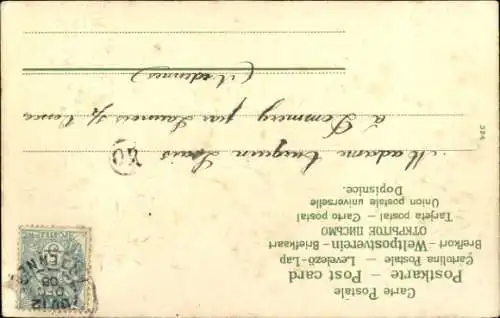 Carte Postale
Postkarte – Post card
Cartolina Postale – Levelező-Lap
Brefkort – Weltpostverein – Briefkaart
ОТКРЫТОЕ ПИСЬМО
Tarjeta postal – Carto postal
Union postale universelle
Dopisnice.
Madame Turquin Louis
à Dommery par Launois s/ Vence
(Ardennes)
40
324